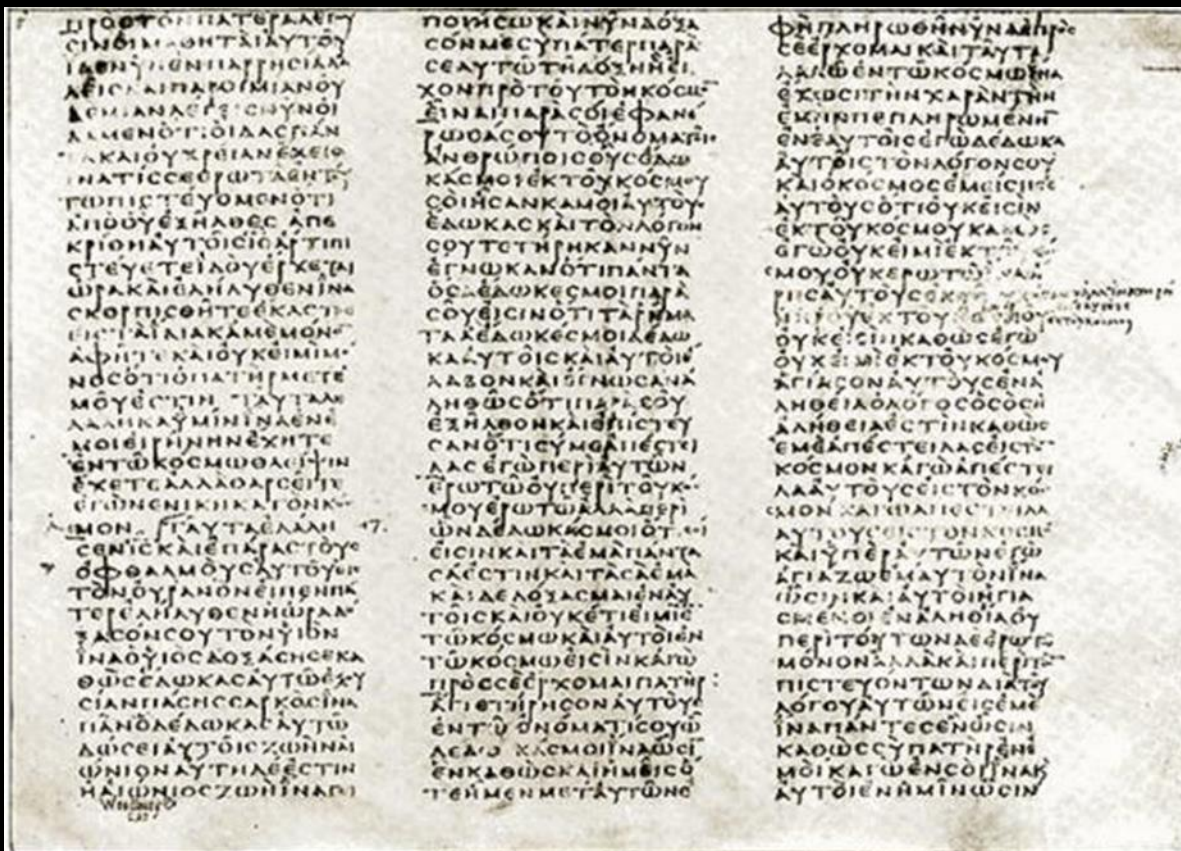 ΠΡΟΣΤΟΝΠΑΤΕΡΑΛΕΓΟΥ
ΣΙΝΟΙΜΑΘΗΤΑΙΑΥΤΟΥ
ΙΔΕΝΥΝΕΝΠΑΡΡΗΣΙΑΛΑ
ΛΕΙΣΚΑΙΠΑΡΟΙΜΙΑΝΟΥ
ΔΕΜΙΑΝΛΕΓΕΙΣΝΥΝΟΙ
ΔΑΜΕΝΟΤΙΟΙΔΑΣΠΑΝ
ΤΑΚΑΙΟΥΧΡΕΙΑΝΕΧΕΙΣ
ΙΝΑΤΙΣΣΕΕΡΩΤΑΕΝΤΟΥ
ΤΩΠΙΣΤΕΥΟΜΕΝΟΤΙ
ΑΠΟΘΥΕΞΗΛΘΕΣ ΑΠΕ
ΚΡΙΘΗΑΥΤΟΙΣΙΣΑΡΤΙΠΙ
ΣΤΕΥΕΤΕΙΔΟΥΕΡΧΕΤΑΙ
ΩΡΑΚΑΙΕΛΗΛΥΘΕΝΙΝΑ
ΣΚΟΡΠΙΣΘΗΤΕΕΚΑΣΤΟΣ
ΕΙΣΤΑΙΔΙΑΚΑΜΕΜΟΝΟ
ΑΦΗΤΕΚΑΙΟΥΚΕΙΜΙΜΟ
ΝΟΣΟΤΙΟΠΑΤΗΡΜΕΤΕ
ΜΟΥΕΣΤΙΝ ΤΑΥΤΑΛΕ
ΛΑΛΗΚΑΥΜΙΝΙΝΑΕΝΕ
ΜΟΙΕΙΡΗΝΗΝΕΧΗΤΕ
ΕΝΤΩΚΟΣΜΩΘΛΕΙΨΙΝ
ΕΧΕΤΕΑΛΛΑΘΑΡΣΕΙΤΕ
ΕΓΩΝΕΝΙΚΗΚΑΤΟΝΚΟ
ΜΟΝ ΤΑΥΤΑΕΛΑΛΗ
ΣΕΝΙΣΚΑΙΕΠΑΡΑΣΤΟΥΣ
ΟΦΘΑΛΜΟΥΣΑΥΤΟΥΕΙΣ
ΤΟΝΟΥΡΑΝΟΝΕΙΠΕΝΠΑ
ΤΕΡΕΛΗΛΥΘΕΝΗΩΡΑΔΟ
ΞΑΣΟΝΣΟΥΤΟΝΥΙΟΝ
ΙΝΑΟΥΙΟΣΔΟΞΑΣΗΣΕΚΑ
ΘΩΣΕΔΩΚΑΣΑΥΤΩΕΞΟΥ
ΣΙΑΝΠΑΣΗΣΣΑΡΚΟΣΙΝΑ
ΠΑΝΟΔΕΔΩΚΑΣΑΥΤΩ
ΔΩΣΕΙΑΥΤΟΙΣΖΩΗΝΑΙ
ΩΝΙΟΝΑΥΤΗΔΕΕΣΤΙΝ
ΗΑΙΩΝΙΟΣΖΩΗΙΝΑΓΕΙ
ΠΟΙΗΣΩΚΑΙΝΥΝΔΟΞΑ
ΣΟΝΜΕΣΥΠΑΤΕΡΠΑΡΑ
ΣΕΑΥΤΩΤΗΔΟΞΗΗΕΙ
ΧΟΝΠΡΟΤΟΥΤΟΝΚΟΣΜΟ
ΕΙΝΑΙΠΑΡΑΣΟΙΕΦΑΝΕ
ΡΩΣΑΣΟΥΤΟΟΝΟΜΑΤΟΙΣ
ΑΝΘΡΩΠΟΙΣΟΥΣΕΔΩ
ΚΑΣΜΟΙΕΚΤΟΥΚΟΣΜΟΥ
ΣΟΙΗΣΑΝΚΑΜΟΙΑΥΤΟΥΣ
ΕΔΩΚΑΣΚΑΙΤΟΝΛΟΓΟΝ
ΣΟΥΤΕΤΗΡΗΚΑΝΝΥΝ
ΕΓΝΩΚΑΝΟΤΙΠΑΝΤΑ
ΟΣΑΕΔΩΚΕΣΜΟΙΠΑΡΑ
ΣΟΥΕΙΣΙΝΟΤΙΤΑΡΗΜΑ
ΤΑΑΕΔΩΚΕΣΜΟΙΔΕΔΩ
ΚΑΑΥΤΟΙΣΚΑΙΑΥΤΟΙΕ
ΛΑΒΟΝΚΑΙΕΓΝΩΣΑΝΑ
ΛΗΘΩΣΟΤΙΠΑΡΑΣΟΥ
ΕΞΗΛΘΟΝΚΑΙΕΠΙΣΤΕΥ
ΣΑΝΟΤΙΣΥΜΕΑΠΕΣΤΕΙ
ΛΑΣΕΓΩΠΕΡΙΑΥΤΩΝ
ΕΡΩΤΩΟΥΠΕΡΙΤΟΥΚΟ
ΜΟΥΕΡΩΤΩΑΛΛΑΠΕΡΙ
ΩΝΔΕΔΩΚΑΣΜΟΙΟΤΙΣΟΙ
ΕΙΣΙΝΚΑΙΤΑΕΜΑΠΑΝΤΑ
ΣΑΕΣΤΙΝΚΑΙΤΑΣΑΕΜΑ
ΚΑΙΔΕΔΟΞΑΣΜΑΙΕΝΑΥ
ΤΟΙΣΚΑΙΟΥΚΕΤΙΕΙΜΙΕ
ΤΩΚΟΣΜΩΚΑΙΑΥΤΟΙΕΝ
ΤΩΚΟΣΜΩΕΙΣΙΝΚΑΓΩ
ΠΡΟΣΣΕΕΡΧΟΜΑΙΠΑΤΗΡ:
ΑΓΙΕΤΗΡΗΣΟΝΑΥΤΟΥΣ
ΕΝΤΩΟΝΟΜΑΤΙΣΟΥΩ
ΔΕΔΩΚΑΣΜΟΙΙΝΑΩΣΙ
ΕΝΚΑΘΩΣΚΑΙΗΜΕΙΣΟ
ΤΕΗΜΕΝΜΕΤΑΥΤΩΝΕ
ΦΗΠΛΗΡΩΘΗΝΥΝΔΕΠΡΟΣ
ΣΕΕΡΧΟΜΑΙΚΑΙΤΑΥΤΑ
ΛΑΛΩΕΝΤΩΚΟΣΜΩΙΝΑ
ΕΧΩΣΙΤΗΝΧΑΡΑΝΤΗΝ
ΕΜΗΝΠΕΠΛΗΡΩΜΕΝΗ
ΕΝΕΑΥΤΟΙΣΕΓΩΔΕΔΩΚΑ
ΑΥΤΟΙΣΤΟΝΛΟΓΟΝΣΟΥ
ΚΑΙΟΚΟΣΜΟΣΕΜΕΙΣΗΣΕ
ΑΥΤΟΥΣΟΤΙΟΥΚΕΙΣΙΝ
ΕΚΤΟΥΚΟΣΜΟΥΚΑΘΩΣ
ΕΓΩΟΥΚΕΙΜΙΕΚΤΟΥ
ΜΟΥΟΥΚΕΡΩΤΩΙΝΑ
ΡΗΣΑΥΤΟΥΣΕΚ
ΠΟΝΗΡΟΥΕΚΤΟΥΚΟΣΜΟΥ
ΟΥΚΕΙΣΙΝΚΑΘΩΣΕΓΩ
ΟΥΚΕΙΜΙΕΚΤΟΥΚΟΣΜΟΥ
ΑΓΙΑΣΟΝΑΥΤΟΥΣΕΝΑ
ΛΗΘΕΙΑΟΛΟΓΟΣΟΣΟΣΗ
ΑΛΗΘΕΙΑΕΣΤΙΝΚΑΘΩΣ
ΕΜΕΑΠΕΣΤΕΙΛΑΣΕΙΣΤΟ
ΚΟΣΜΟΝΚΑΓΩΑΠΕΣΤΕΙ
ΛΑΑΥΤΟΥΣΕΙΣΤΟΝΚΟ
ΜΟΝ ΚΑΓΩΑΠΕΣΤΕΙΛΑ
ΑΥΤΟΥΣΕΙΣΤΟΝΚΟΣΜΟ
ΚΑΙΥΠΕΡΑΥΤΩΝΕΓΩ
ΑΓΙΑΖΩΕΜΑΥΤΟΝΙΝΑ
ΩΣΙΝΚΑΙΑΥΤΟΙΗΓΙΑ
ΣΜΕΝΟΙΕΝΑΛΗΘΙΑΟΥ
ΠΕΡΙΤΟΥΤΩΝΔΕΕΡΩΤΩ
ΜΟΝΟΝΑΛΛΑΚΑΙΠΕΡΙΤΩ
ΠΙΣΤΕΥΟΝΤΩΝΔΙΑΤΟΥ
ΛΟΓΟΥΑΥΤΩΝΕΙΣΕΜΕ
ΙΝΑΠΑΝΤΕΣΕΝΩΣΙΝ
ΚΑΘΩΣΣΥΠΑΤΗΡΕΝΕ
ΜΟΙΚΑΓΩΕΝΣΟΙΙΝΑΚ
ΑΥΤΟΙΕΝΗΜΙΝΩΣΙΝ